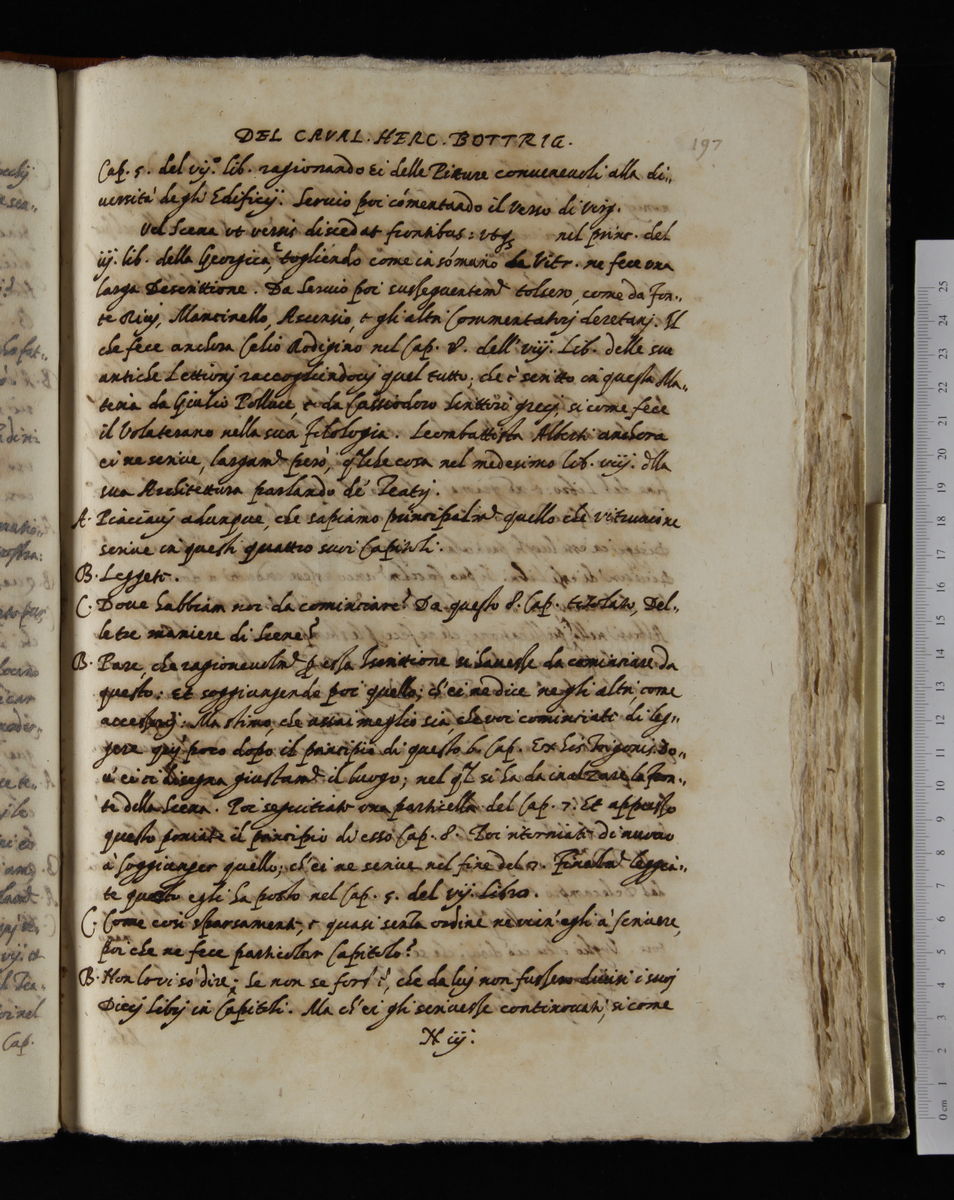 DEL CAVAL. HERC. BOTTRIG.
197
Cap. 5. del vij.° lib. ragionando ei delle Pitture convenevoli alla di,,
versità de gli Edificij. Servio poi comentando il verso di Virg.
Vel Scena ut versis discedat frontibus: utqȝ nel princ. del
iij. lib. della Georgica, togliendo come in somario da Vitr. ne fece una
larga Descrittione. Da Servio poi susseguentem. tolsero, come da Fon,,
te Rivj, Mancinello, Ascensio, et gli altri Commentatorj deretanj. Il
che fece anchora Celio Rodigino nel Cap. 8. dell' viij. Lib. delle sue
antiche Lettionj raccogliendoci quel tutto, che è scritto in questa Ma,,
teria da Giulio Polluce, et da Cassiodoro Scrittori greci, si come fece
il Volaterano nella sua filologia. Leombattista Alberti anchora
ei ne scrive, largam. però, qlche cosa nel medesimo lib. viij. dlla
sua Architettura parlando de' Teatrj.
A. Piacciavj adunque, che sapiamo principalm. quello che Vitruvio ne
scrive in questi quattro suoi Capitoli.
B. Leggete.
C. Dove habbiam noi da cominciare? Da questo 8. Cap. titolato, Del,,
le tre maniere di Scene?
B. Pare, che ragionevolm. p essa Inscrittione si havesse da cominciare da
questo: Et soggiungende poi quello, ch'ei ne dice ne gli altri come
accessorij: Ma stimo, che assai meglio sia che voi cominciati di leg,,
gere quj poco dopo il principio di questo 6. Cap. Ex his Trigonis, Do,,
v' ei ci disegna giustam. il luogo, nel ql si ha da inalzare la fron,,
te della Scena. Poi seguitiate una particella del Cap. 7. Et appresso
questo poniate il principio di esso Cap. 8. Poi ritorniati di nuovo
à soggiunger quello, ch'ei ne scrive nel fine del 7. Finalm. leggei,,
te questo egli ha posto nel Cap. 5. del vij. libro.
C. Come cosi sparsamente, et quasi senza ordine ne vien' egli à scrivere,
poi che ne fece particolar Capitolo?
B. Non lo vi so dire; Se non se fors'è, che da luj non fussero divisi i suoi
Diecj librj in Capitoli. Ma ch'ei gli scrivesse continovati, si come
N iij: